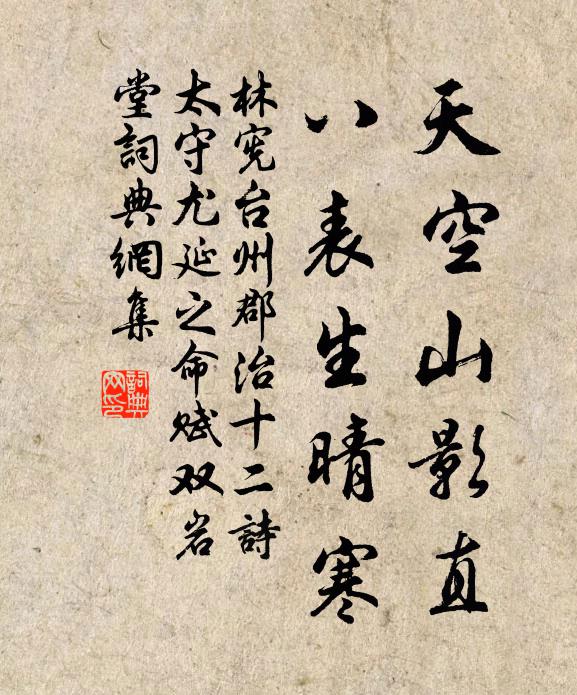 天空山影直
八表生晴寒
林宪台州郡治十二詩
太守尤延之命赋双岩
堂詞典網集
詞典
网印